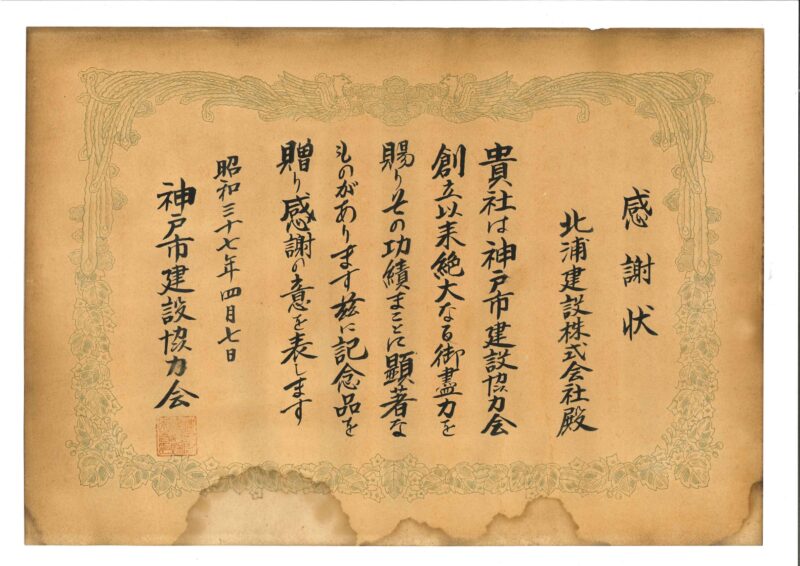 感謝状
北浦建設株式会社殿
貴社は神戸市建設協力会
創立以来絶大なる御盡力を
賜りその功績まことに顕著な
ものがあります玆に記念品を
贈り感謝の意を表します
昭和三十七年四月七日
神戸市建設協力会